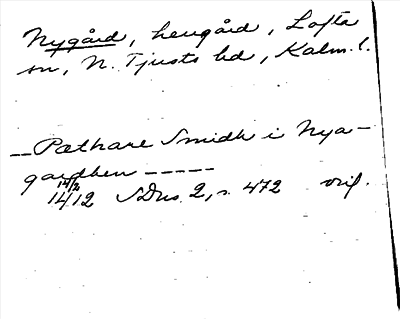 Nygård, herrgård, Lofta
sn, N. Tjusts hd, Kalm. l.
— Pæthare Smidh i Nya-
gardhen - - - - -
14/2
1412 SDns. 2, s. 472 orig.